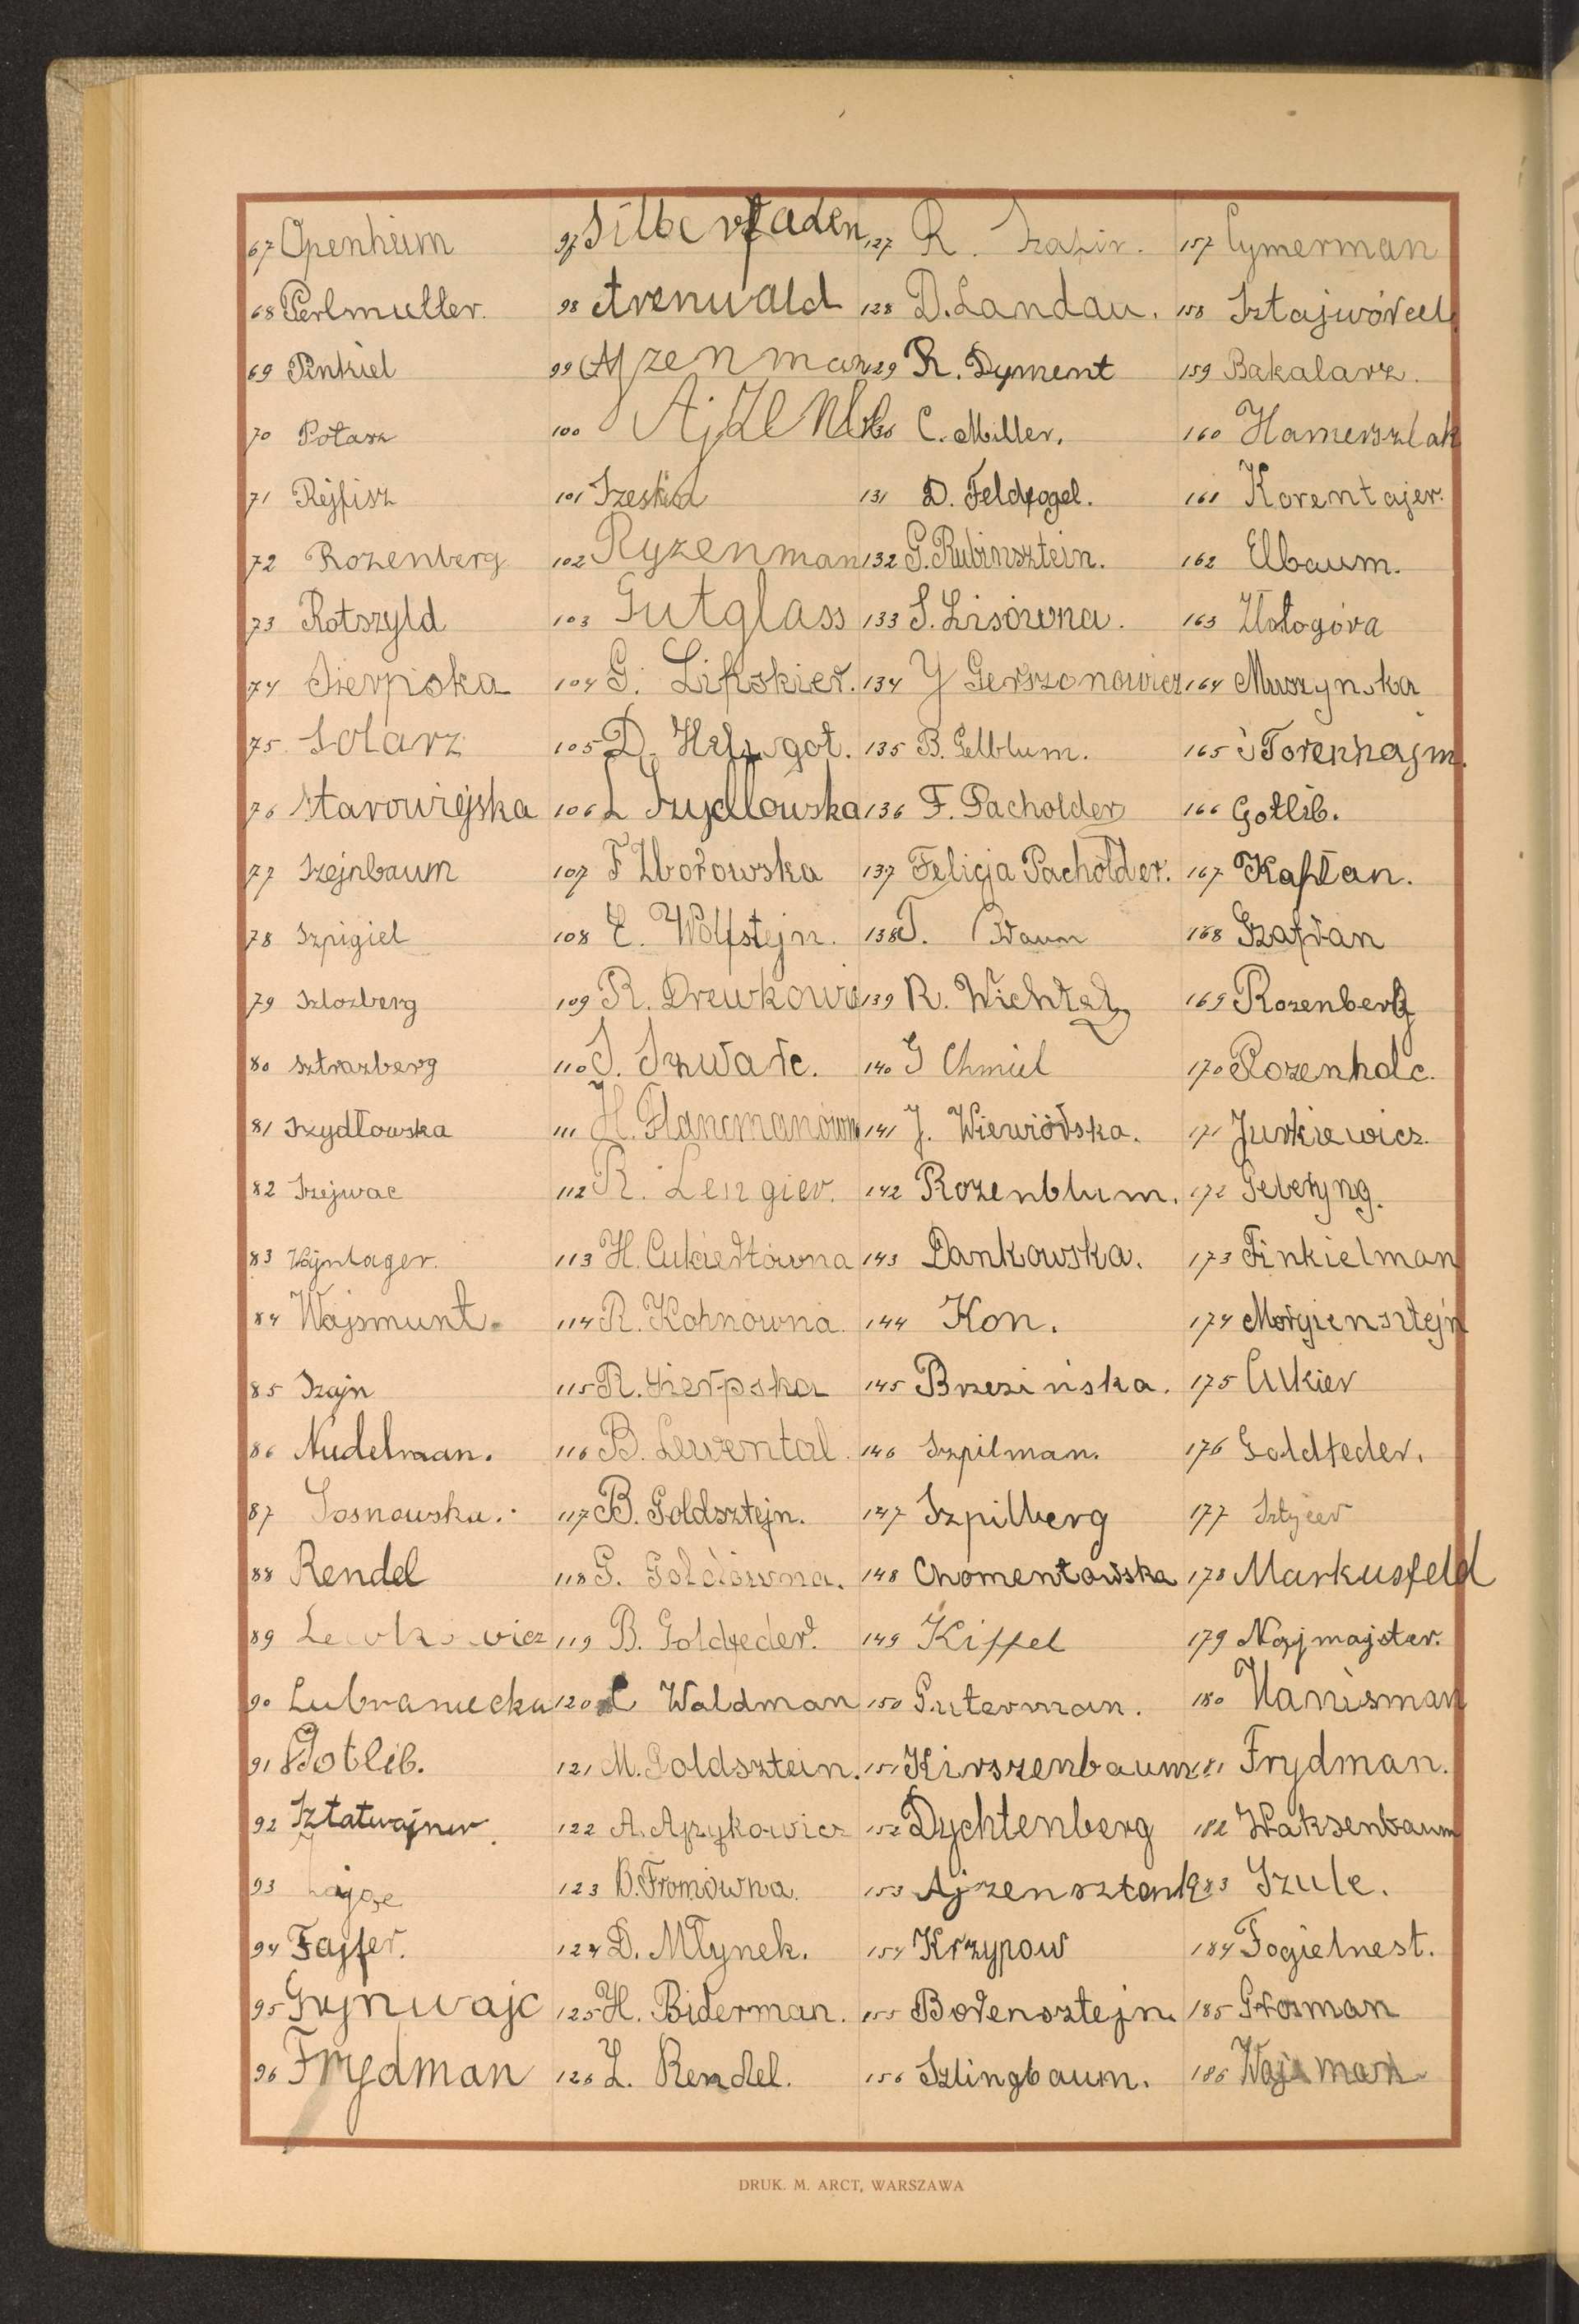 67 Openheim
68 Perlmutter.
69 Pinkiel
70 Potasz
71 Rejfisz
72 Rozenberg
73 Rotszyld
74 Sierpska
75 Solarz
76 Starowiejska
77 Szejnbaum
78 Szpigiel
79 Szlozberg
80 Sztrazberg
81 Szydłowska
82 Szejwac
83 Wajnlager.
84 Wajsmunt.
85 Szajn
86 Nudelman.
87 Sosnowska.
88 Rendel
89 Lewkowicz
90 Lubraniecka
91 Gotlib.
92 Sztatwajner
93
94 Fajfer.
95 Grynwajc
96 Frydman
97 Silberfaden
98 Arenwald
99 Ajzenman
100
101 Szeskin
102 Ryzenman
103 Gutglass
104 G. Lipskier.
105 D. Helfgot.
106 L Szydłowska
107 F Zborowska
108 E. Wolfstejn.
109 R. Drewkowic
110 S. Szwarc.
111 H. Flancmanówn
112 R. Lengier.
113 H. Cukiertówna
114 R. Kohnówna.
115 R. Sierpska
116 B. Lewental.
117 B. Goldsztejn.
118 G. Goldówna.
119 B. Goldfeder.
120 C Waldman
121 M. Goldsztein.
122 A. Ajzykowicz
123 B. Fromówna.
124 D. Młynek.
125 H. Biderman.
126 L. Rendel.
127 R. Szafir.
128 D. Landau.
129 R. Dyment
130 C. Miller.
131 D. Feldfogel.
132 G. Rubinsztein.
133 S. Lisówna.
134 Y Gerszonowicz
135 B. Gelblum.
136 F. Pacholder
137 Felicja Pacholder.
138 T. Baum
139 R. Wichtel
140 G Chmiel
141 J. Wiewiórska.
142 Rozenblum.
143 Dankowska.
144 Kon.
145 Brzezińska.
146 Szpilman.
147 Szpilberg
148 Chomentowska
149 Kiffel
150 Guterman.
151 Kirszenbaum
152 Dychtenberg
153 Ajzensztank
154 Krzypow
155 Borensztejn.
156 Szlingbaum.
157 Cymerman
158 Sztajwórcel
159 Bakalarz.
160 Hamerszlak
161 Korentajer.
162 Elbaum.
163 Złotogóra
164 Muszyńska
165 Torenhajm.
166 Gotlib.
167 Kapłan.
168 Szafran
169 Rozenberg
170 Rozenholc.
171 Jurkiewicz.
172 Geberyng.
173 Finkielman
174 Morgiensztejn
175 Cukier
176 Goldfeder.
177
178 Markusfeld
179 Najmajster.
180 Hanisman
181 Frydman.
182 Waksenbaum
183 Szulc.
184 Fogielnest.
185 Grosman
186 Wajsman
DRUK. M. ARCT, WARSZAWA